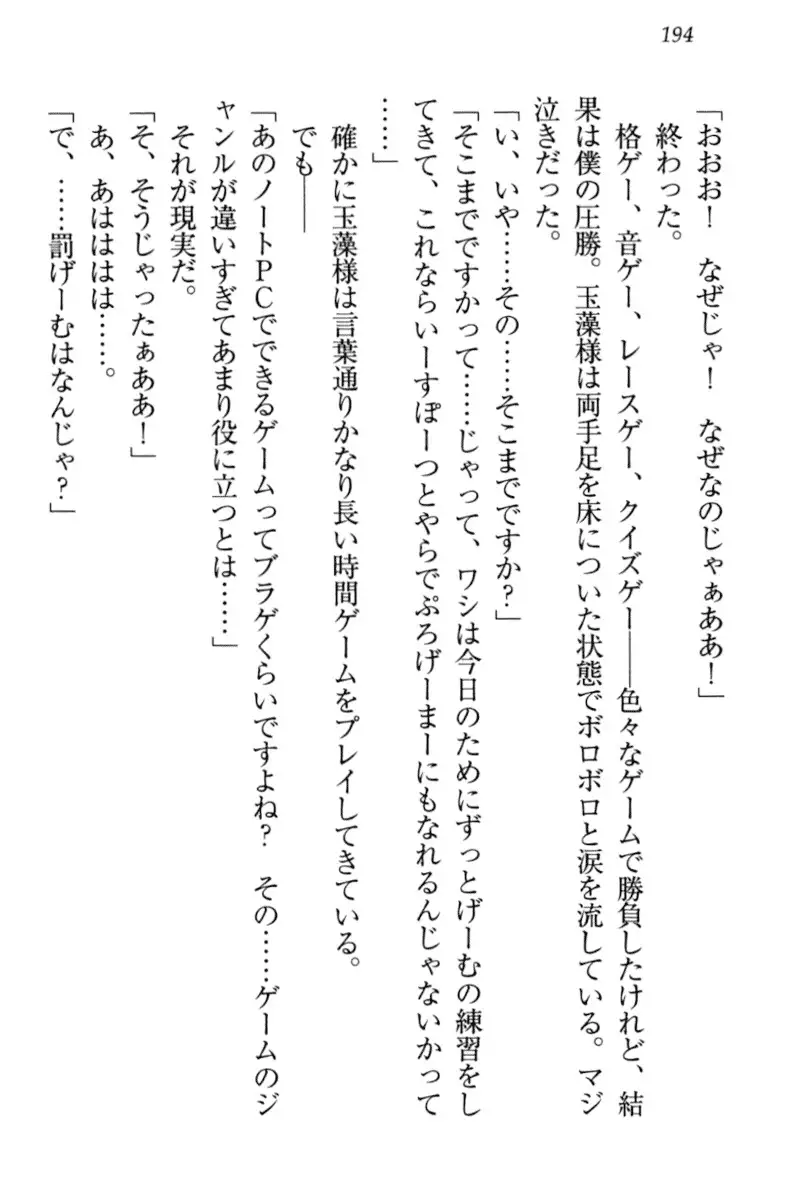 194
「おおお！　なぜじゃ！　なぜなのじゃぁああ！」
終わった。
格ゲー、音ゲー、レースゲー、クイズゲー――色々なゲームで勝負したけれど、結
果は僕の圧勝。玉藻様は両手足を床についた状態でボロボロと涙を流している。マジ
泣きだった。
「い、いや……その……そこまでですか？」
「そこまでですかって……じゃって、ワシは今日のためにずっとげーむの練習をし
てきて、これならいーすぽーつとやらでぷろげーまーにもなれるんじゃないかって
……」
確かに玉藻様は言葉通りかなり長い時間ゲームをプレイしてきている。
でも――
「あのノートPCでできるゲームってブラゲくらいですよね？　その……ゲームのジ
ャンルが違いすぎてあまり役に立つとは……」
それが現実だ。
「そ、そうじゃったぁああ！」
あ、あはははは……。
「で、……罰げーむはなんじゃ？」